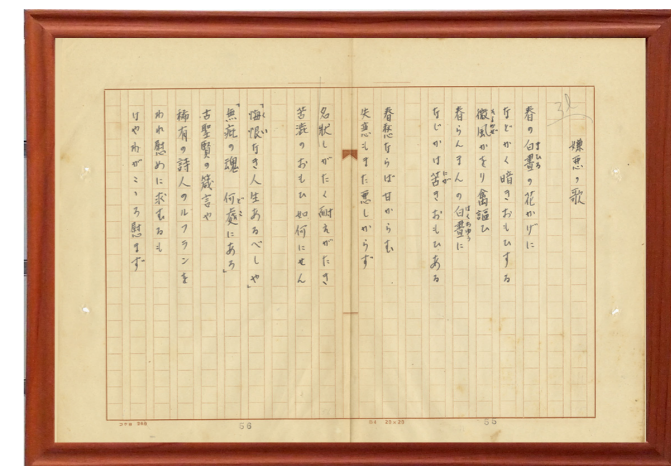 嫌悪の歌
春の白晝の花かげに
まひる
などかく暗きおもひする
微風かをり禽謳ひ
そよかぜ
春らんまんの白晝に
はくちゆう
などかは苦きおもひある
にが
春愁ならば甘からむ
失恋もまた悪しからず
名状しがたく耐えがたき
苦澁のおもひ如何にせん
「悔恨なき人生あるべしや」
くい
「無疵の魂 何處にあろ」
どこ
古聖賢の箴言や
稀有の詩人のルフランを
われ慰めに求むるも
はやわがこゝろ慰まず
65
B4 20×20
66
コクヨ